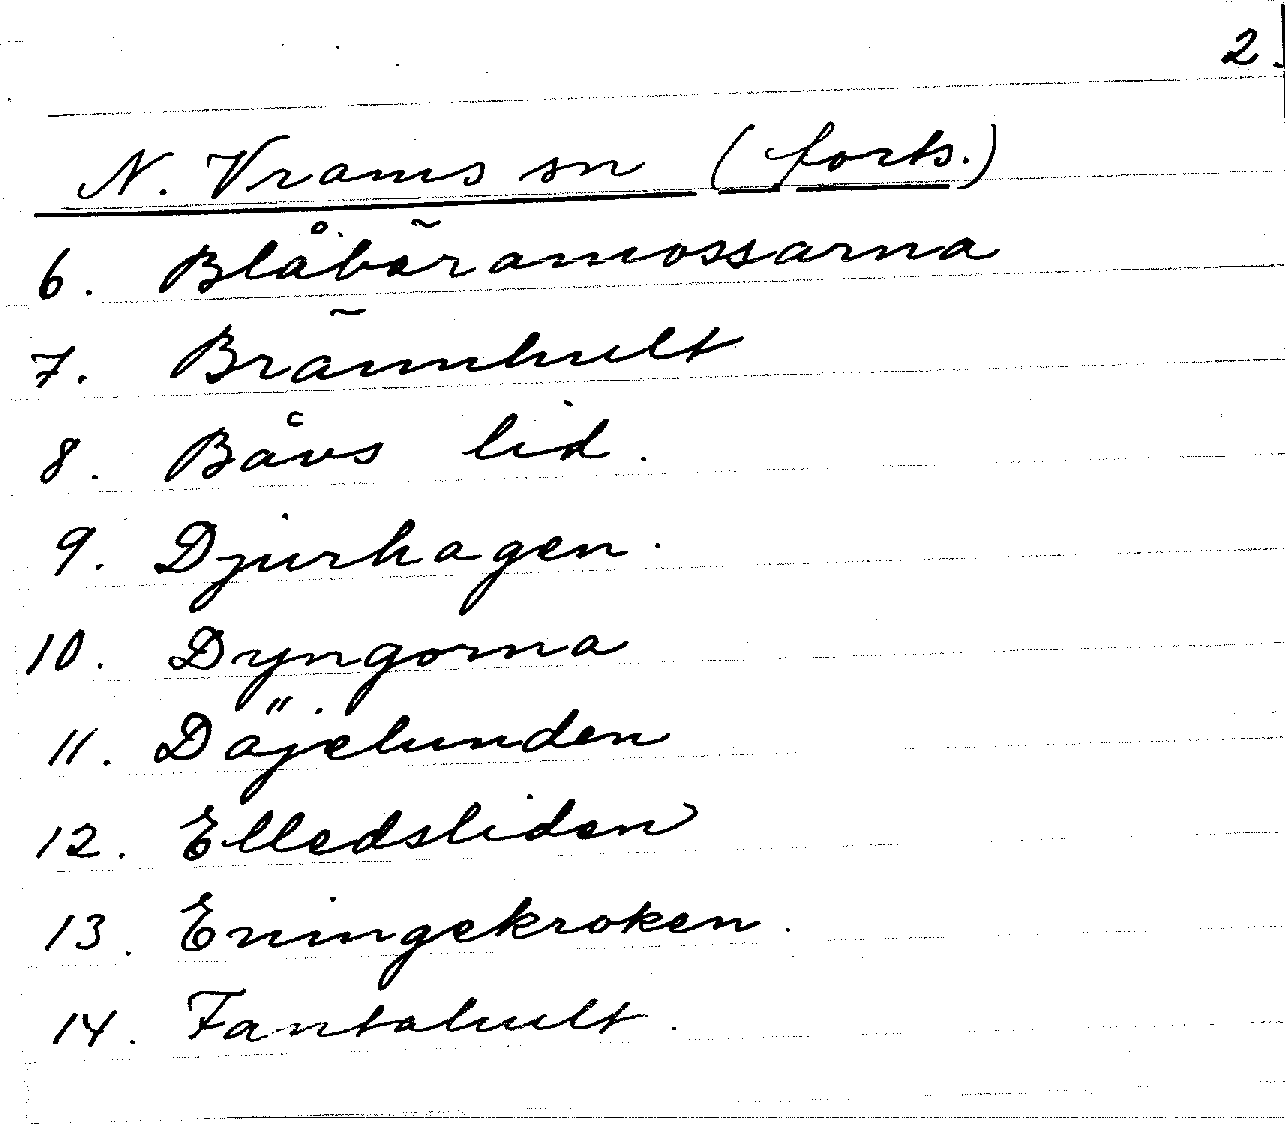 2.
N. Vrams sn (forts.)
6. Blåbäramossarna
7. Brännhult
8. Båvs lid.
9. Djurhagen.
10. Dyngorna
11. Döjelunden
12. Elledsliden
13. Enningekroken.
14. Fantahult.